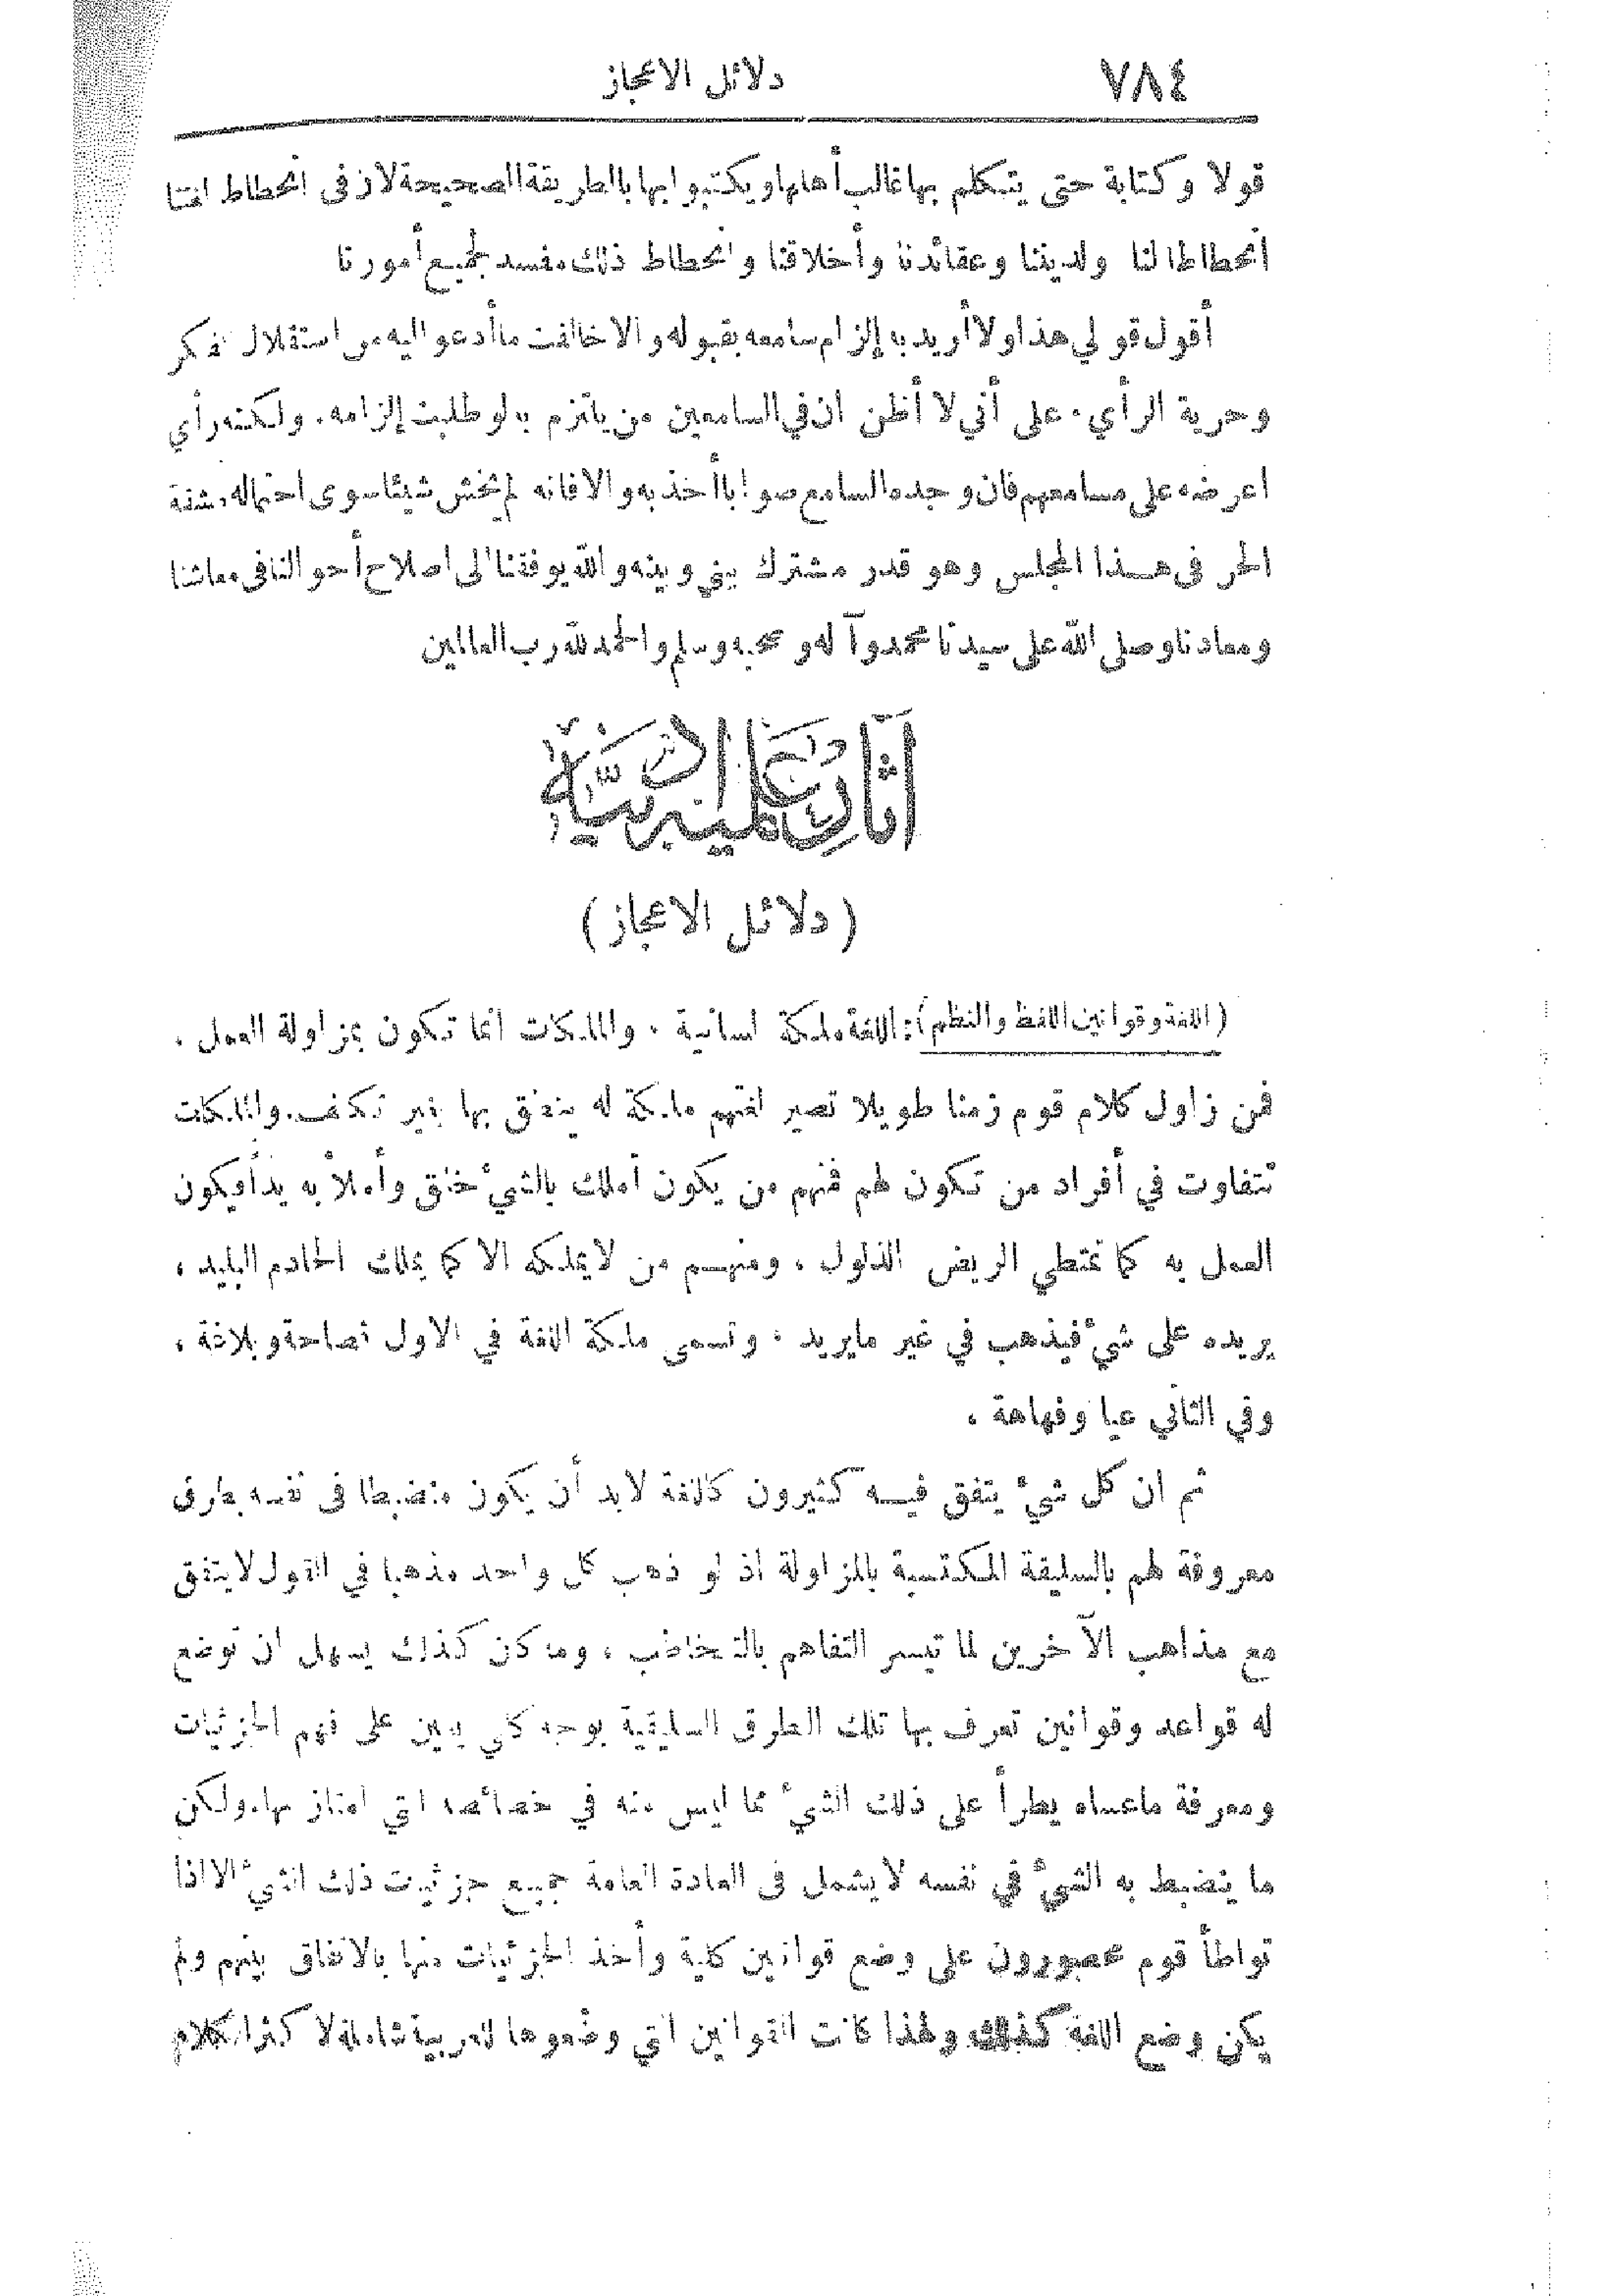 ٧٨٤ دلائل الاعجاز
قولا وكتابة حتى يتكلم بها غالب أهلها ويكتبوا بها بالطريقة الصحيحة لان في انحطاط لغتنا
انحطاطا لنا ولديننا وعقائدنا وأخلاقنا وانحطاط ذلك مفسد لجميع أمورنا
أقول قولي هذا ولا أريد به إلزام سامعه بقبوله والا خالفت ما أدعو اليه من استقلال الفكر
وحرية الرأي. على أني لا أظن ان في السامعين من يلتزم به لو طلبت إلزامه. ولكنه رأي
اعرضه على مسامعهم فان وجده السامع صوابا أخذ به والا فانه لم يخش شيئا سوى احتماله مشقة
الحر في هذا المجلس وهو قدر مشترك بيني وبينه والله يوفقنا الى اصلاح أحوالنا في معاشنا
ومعادنا وصلى الله على سيدنا محمد وآله وصحبه وسلم والحمد لله رب العالمين
آثار علمية أدبية
(دلائل الاعجاز)
(اللغة وقوانين اللفظ والنظم): اللغة ملكة لسانية . والملكات انما تكون بمزاولة العمل .
فمن زاول كلام قوم زمنا طويلا تصير لغتهم ملكة له ينطق بها بغير تكلف. والملكات
تتفاوت في أفراد من تكون لهم فمنهم من يكون أملك بالشيء خلق وأملأ به يدا ويكون
العمل به كما تمتطي الريض الذلول ، ومنهم من لا يملكه الا كما يملك الخادم البليد ،
يريده على شيء فيذهب في غير ما يريد . وتسمى ملكة اللغة في الاول فصاحة وبلاغة ،
وفي الثاني عيا وفهاهة .
ثم ان كل شيء يتفق فيه كثيرون كاللغة لابد أن يكون منضبطا في نفسه بطرق
معروفة لهم بالسليقة المكتسبة بالمزاولة اذ لو ذهب كل واحد مذهبا في القول لا يتفق
مع مذاهب الآخرين لما تيسر التفاهم بالتخاطب ، وما كان كذلك يسهل ان توضع
له قواعد وقوانين تعرف بها تلك الطرق السليقية بوجه كلي يعين على فهم الجزئيات
ومعرفة ماعساه يطرأ على ذلك الشيء مما ليس منه في خصائصه التي امتاز بها. ولكن
ما ينضبط به الشيء في نفسه لا يشمل في العادة العامة جميع جزئيات ذلك الشيء الا اذا
تواطأ قوم محصورون على وضع قوانين كلية وأخذ الجزئيات منها بالاتفاق بينهم ولم
يكن وضع اللغة كذلك ولهذا كانت القوانين التي وضعوها للعربية شاملة لا كثر الكلام